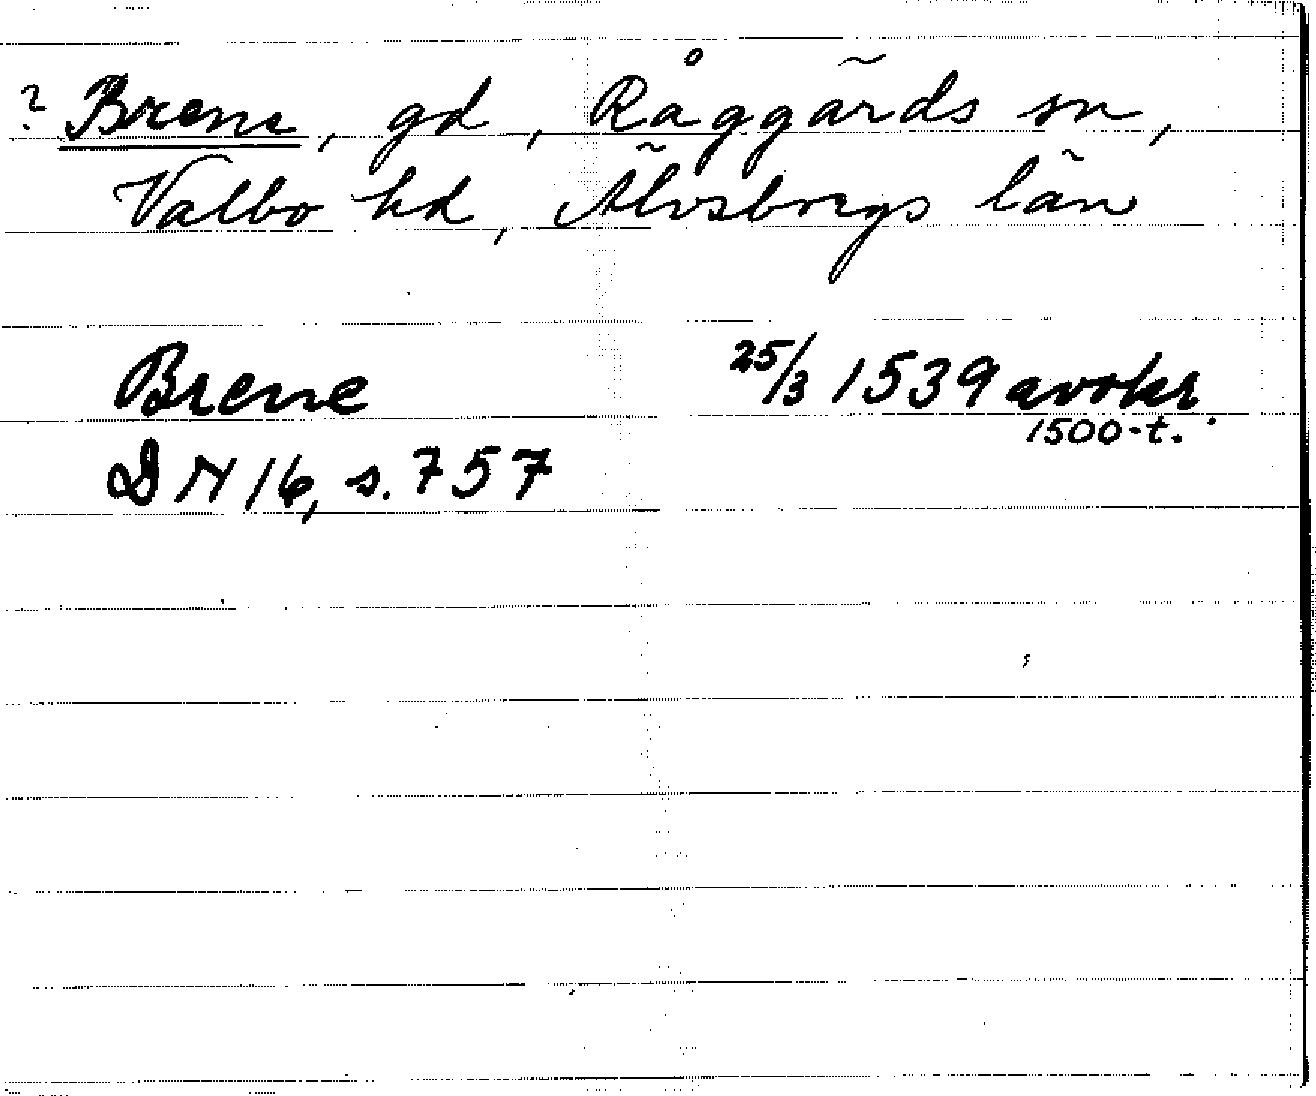 ? Brene, gd, Råggärds sn,
Valbo hd, Älvsborgs län
Brene 25/3 1539 avskr.
1500-t.
DN 16, s. 757